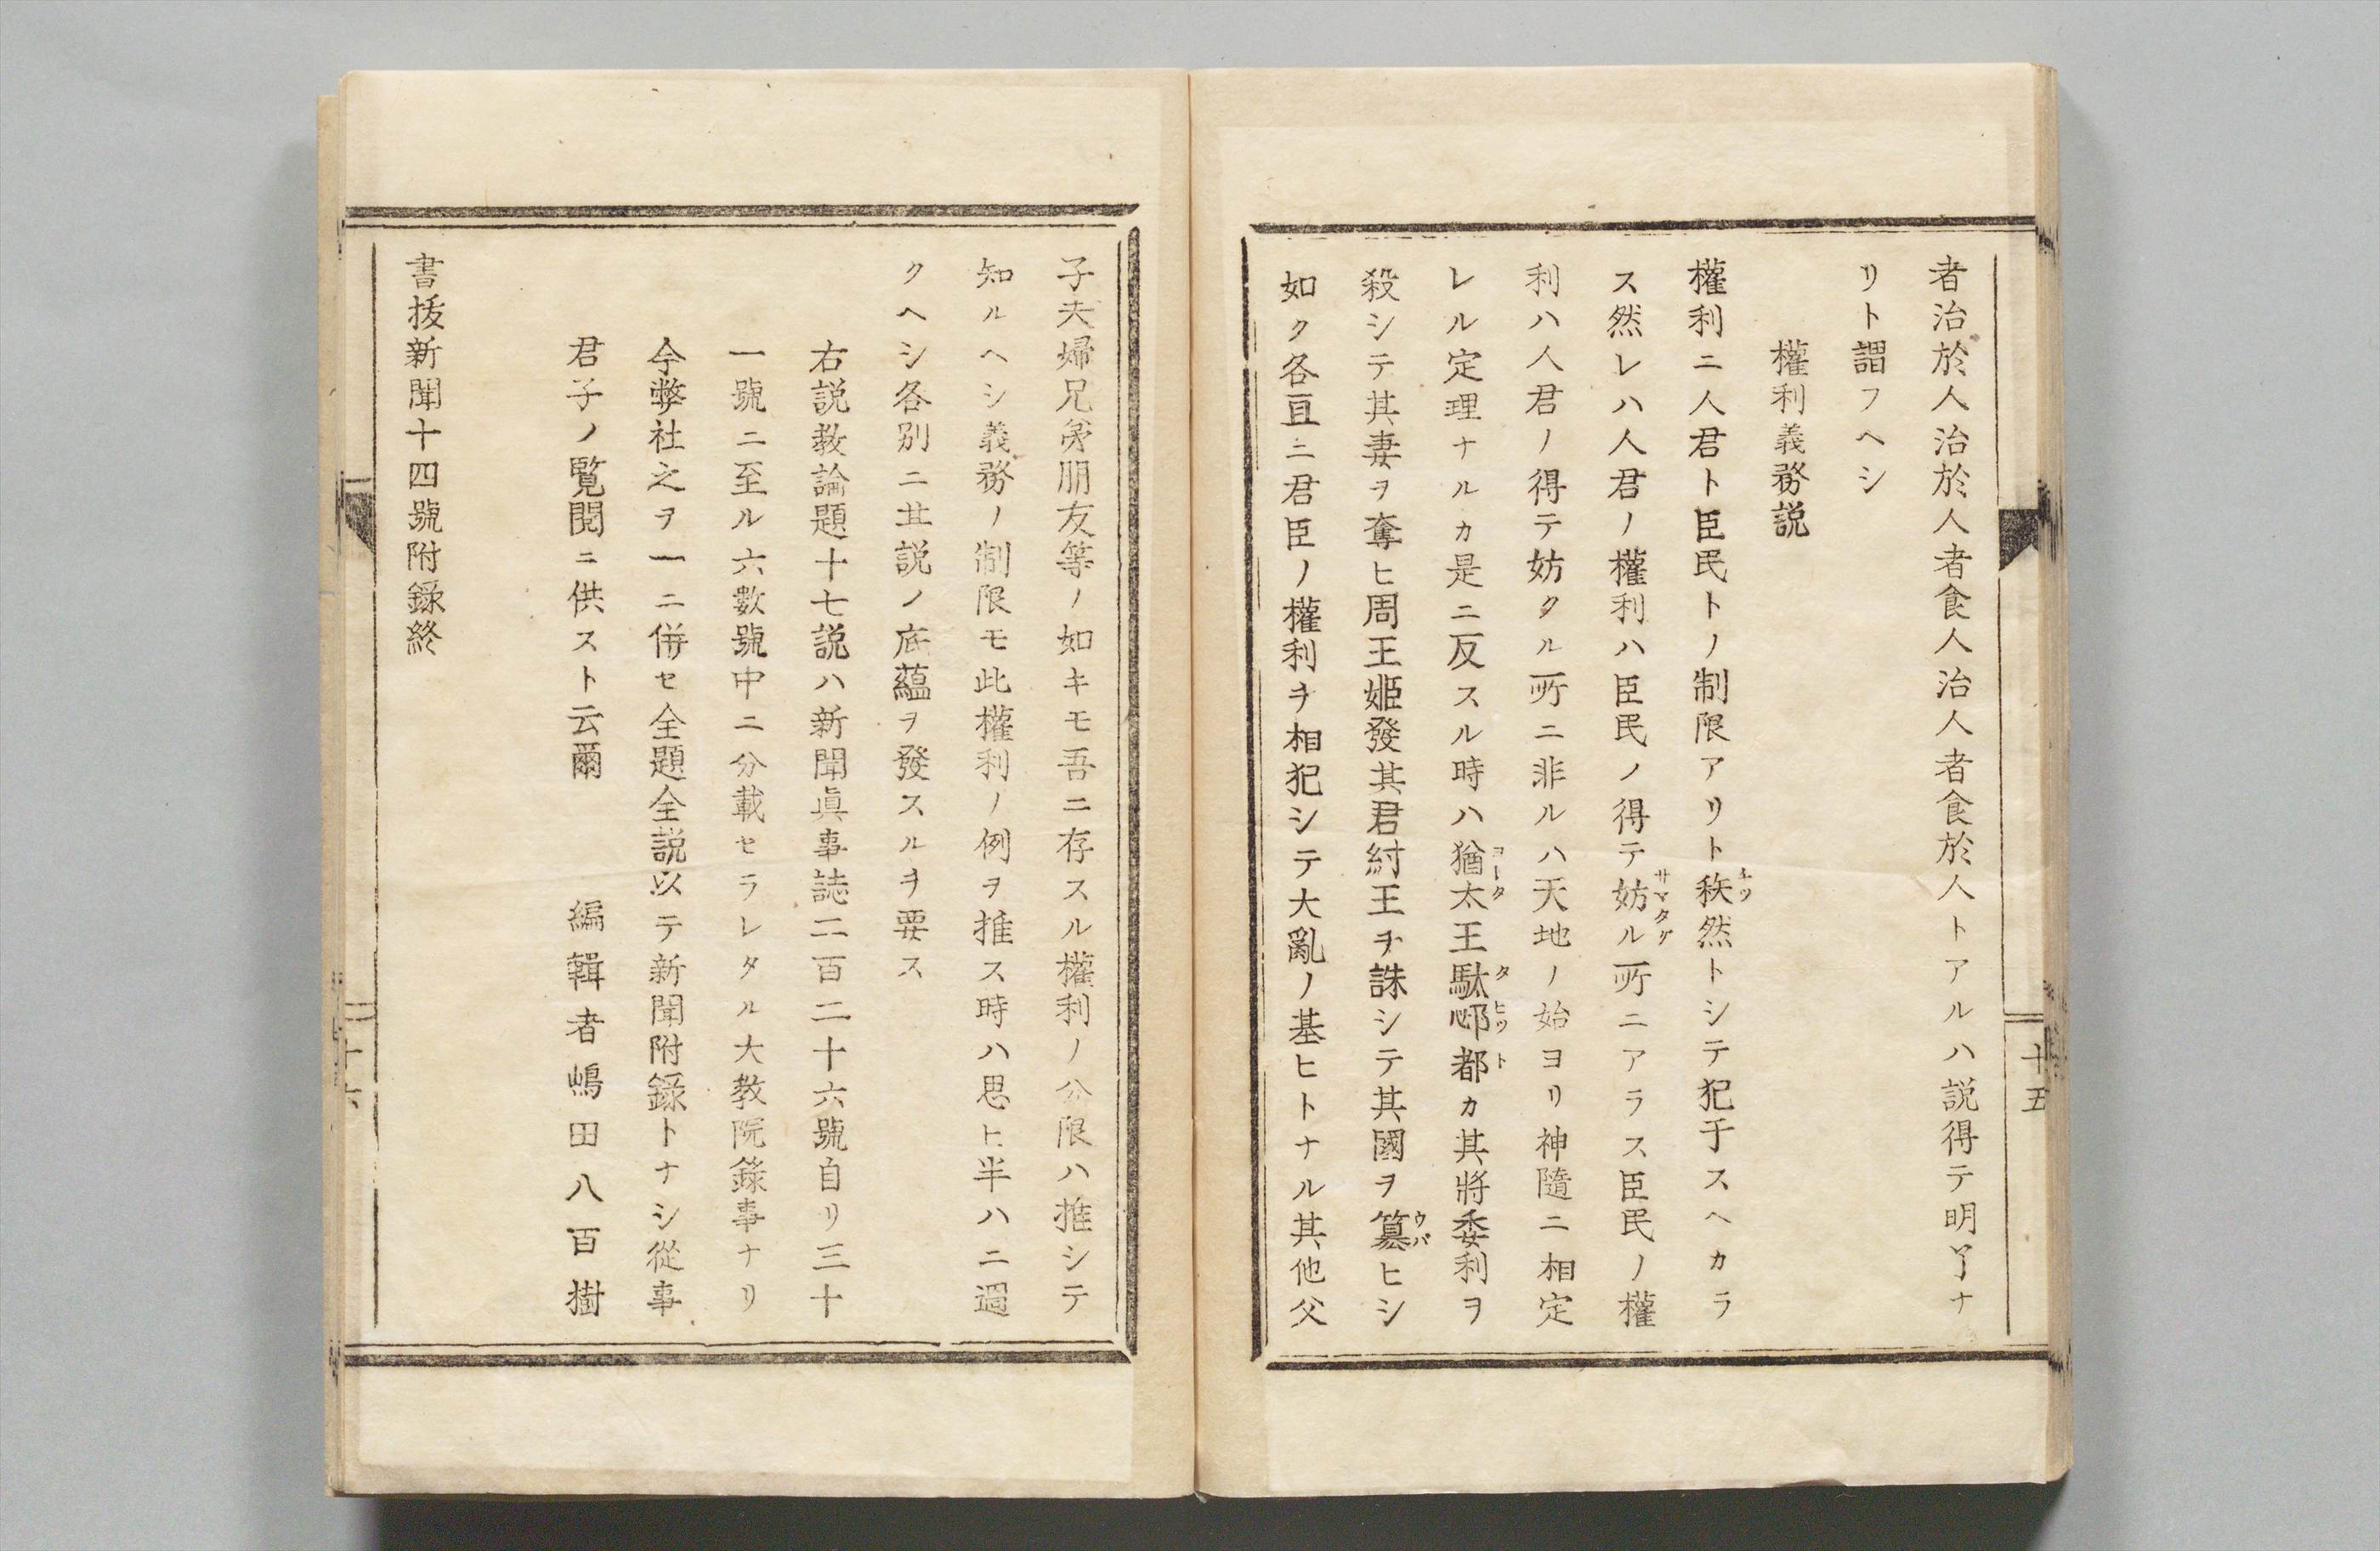 者治於人治於人者食人治人者食於人トアルハ説得テ明了ナ
リト謂フヘシ
權利義務説
權利ニ人君ト臣民トノ制限アリト秩然トシテ犯于スヘカラ
ス然レハ人君ノ權利ハ臣民ノ得テ妨ル所ニアラス臣民ノ權
利ハ人君ノ得テ妨クル所ニ非ルハ天地ノ始ヨリ神隨ニ相定
レル定理ナルカ是ニ反スル時ハ猶太王駄都カ其將委利ヲ
殺シテ其妻ヲ奪ヒ周王姫發其君紂王ヲ誅シテ其國ヲ簒ヒシ
如ク各亘ニ君臣ノ權利ヲ相犯シテ大亂ノ基ヒトナル其他父
十五
子夫婦兄弟朋友等ノ如キモ吾ニ存スル權利ノ分限ハ推シテ
知ルヘシ義務ノ制限モ此權利ノ例ヲ推ス時ハ思ヒ半ハニ過
クヘシ各別ニ其説ノ底蘊ヲ發スルヲ要ス
右説教論題十七説ハ新聞眞事誌二百二十六號自リ三十
一號ニ至ル六數號中ニ分載セラレタル大教院錄事ナリ
今弊社之ヲ一ニ併セ全題全説以テ新聞附錄トナシ從事
君子ノ覧閲ニ供スト云爾　　編輯者嶋田八百樹
書抜新聞十四號附錄終
十六